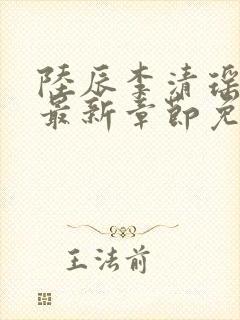 陆辰李清瑶
最新章节免
王法前